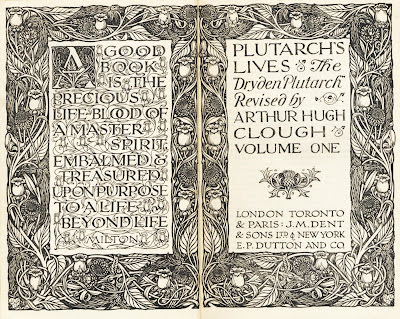 A GOOD
BOOK
IS THE
PRECIOUS
LIFE-BLOOD OF
A MASTER
SPIRIT,
EMBALMED &
TREASURED
UPON PURPOSE
TO A LIFE
BEYOND LIFE
MILTON
PLUTARCH'S
LIVES The
Dryden Plutarch
Revised by
ARTHUR HUGH
CLOUGH
VOLUME ONE
LONDON TORONTO
& PARIS: J. M. DENT
& SONS LTD. NEW YORK
E. P. DUTTON AND CO